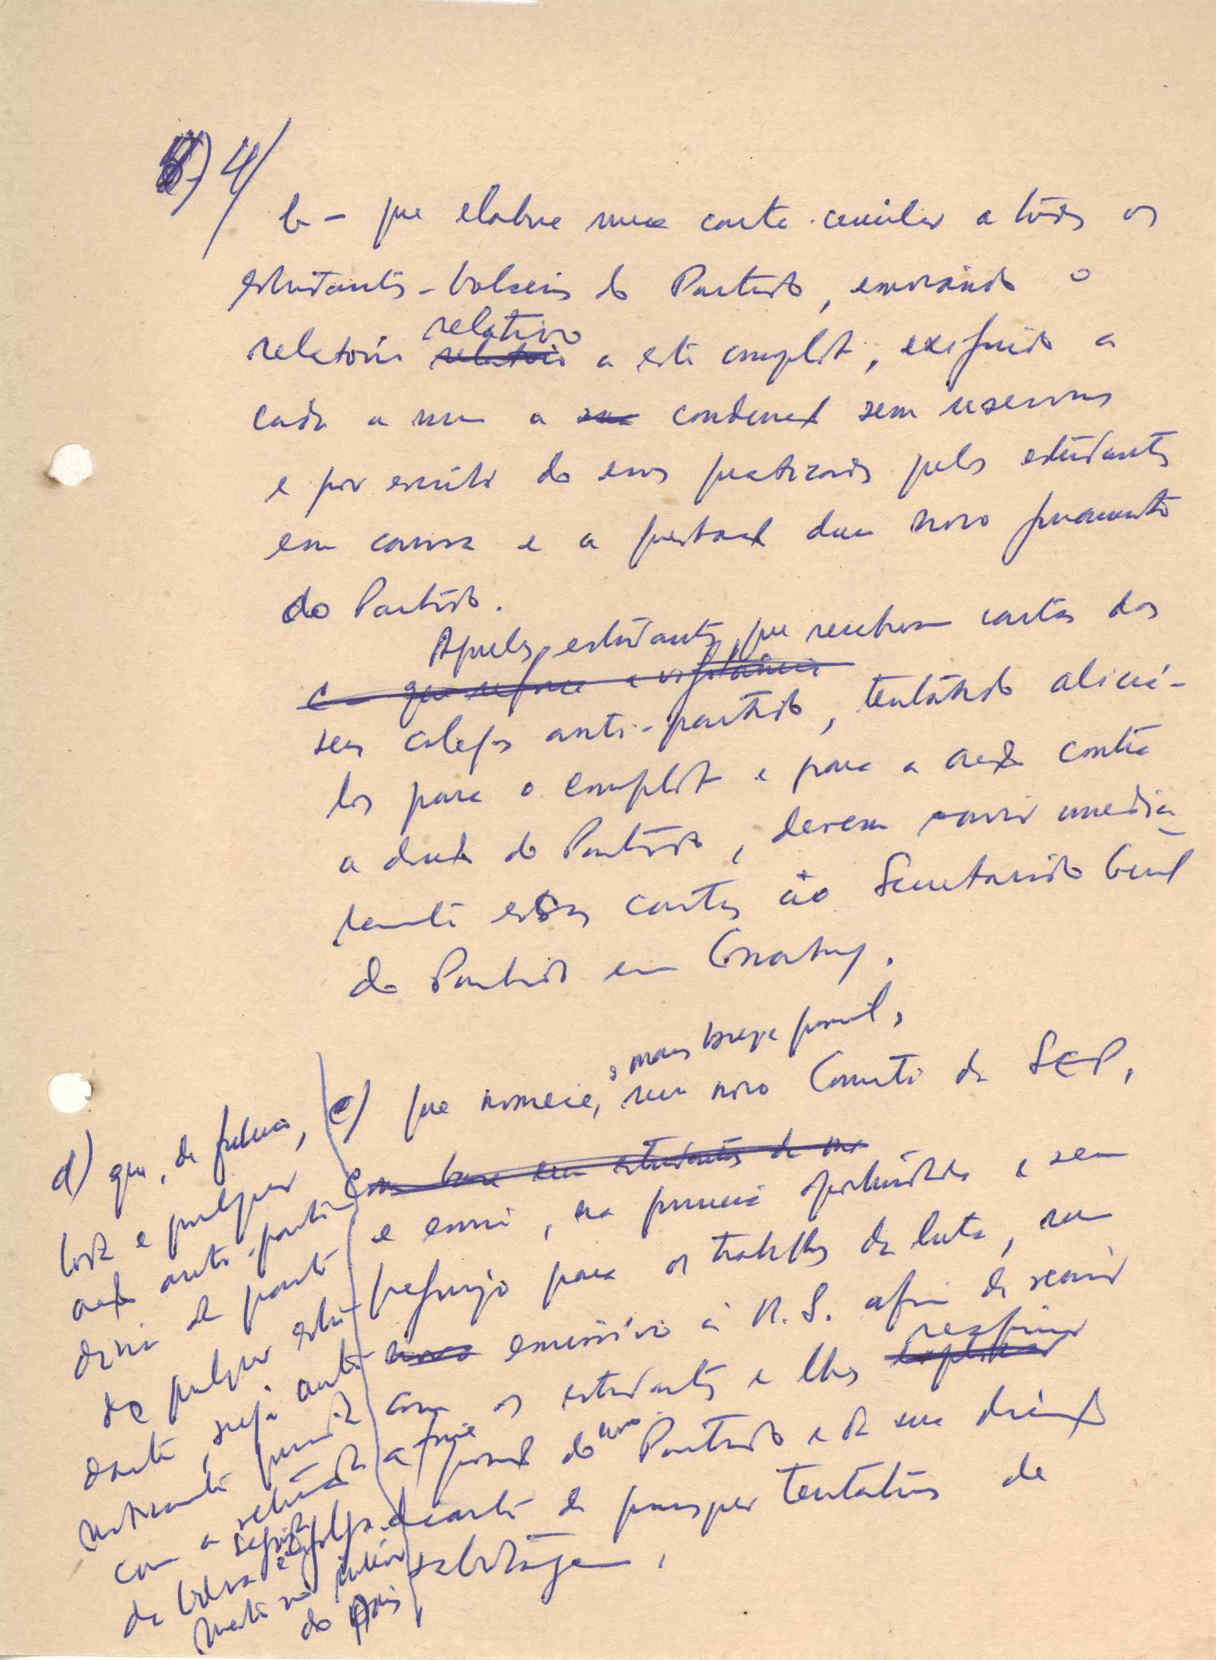 4/
b - que elabore uma carta-circular a todos os
estudantes-bolseiros do Partido, enviando o
relatório relativo a este complot, exigindo a
cada um a condenação sem reservas
e por escrito do erros praticados pelos estudantes
em causa e a prestação dum novo juramento
do Partido.
Aqueles estudantes, que recebem cartas dos
c - que reforce a vigilância
seus colegas anti-partido, tentando aliciá-
los para o complot e para a acção contra
a direcção do Partido, devem enviar imedia-
tamente essas cartas ao Secretariado Geral
do Partido em Conakry.
o mais breve possível,
c) que nomeie, um novo Comité da SEP,
com base em estudantes de
e envie, na primeira oportunidade e sem
prejuízo para os trabalhos da luta, um
novo emissário à R.S. afim de reunir
com os estudantes e lhes explicar reafirmar
a firme posição do nosso Partido e da sua direcção
diante de quaisquer tentativas de
sabotagem.
d) que, de futuro,
toda e qualquer
acção anti-partido
da parte
de qualquer estu-
dante, seja auto-
maticamente punida
com a retirada
da bolsa e
do País